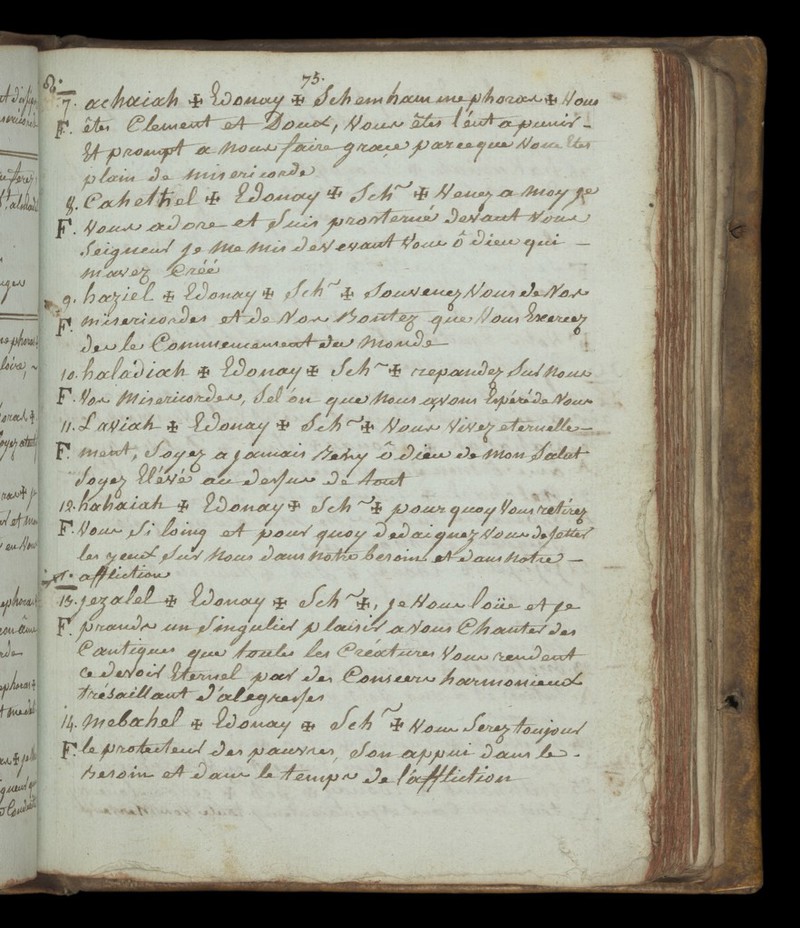 75.
7. achaiah ✠ Edonay ✠ Schemhammephoras ✠ Vous
F. êtes Clement et Doux, Vous êtes l'ent a punir -
Et prompt a nous faire graçe parceque Vous Etes
plain de misericorde
8. Cahethel ✠ Edonay ✠ Sch~ ✠ Venez a moy je
F. Vous adore et suis prosterné devant vous
Seigneur je me mis devevant Vous ô dieu qui -
m'avez Créé
9. haziel ✠ Edonay ✠ Sch~ ✠ Souvenez Vous de Vos
F. misericordes et de Vos Bontez que Vous Exercez
des le Commencement du monde
10. haladiah ✠ Edonay ✠ Sch~ ✠ repandez Sur nous
F. Vos Misericordes, Sel'on que nous avons Espéré de Vous
11. Laviah ✠ Edonay ✠ Sch~ ✠ Vous Vivez eternelle-
F. ment, Soyez a jamais Beny ô dieu de mon Salut
Soyez Elévé au dessus de tout
12. hahaiah ✠ Edonay ✠ Sch~ ✠ pourquoy Vous retirez
F. Vous Si loing et pour quoy dedaignez Vous de jetter
les yeux Sur nous dans notre besoin et dans notre -
affliction
13. jezalel ✠ Edonay ✠ Sch~ ✠, je Vous loüe et je
F. prands un Singulier plaisir a vous Chanter des
Cantiques que toute les Creatures Vous rendent
ce devoir Eternel par des Concers harmonieux
trésaillant d'alegresses
14. mebahel ✠ Edonay ✠ Sch~ ✠ Vous Serez toujour
F. le protecteur des pauvres, Son appui dans le -
Besoin et dans le temps de l'affliction